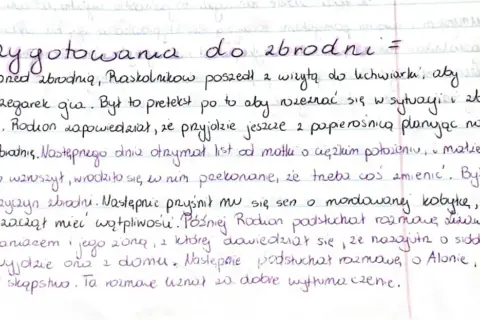 zygotowania do zbrodni =
przed zbrodnią, Raskolnikow poszedł z wizytą do lichwiarki, aby
zegarek ojca. Był to pretekst po to aby rozeznać się w sytuacji i
. Rodion zapowiedział, że przyjdzie jeszcze z papierośnicą planując
zbrodnię. Następnego dnia otrzymał list od matki o ciężkim położeniu, w
wzruszył, wrodziło się w nim przekonanie, że trzeba coś zmienić. By
zbrodni. Następnie przyśnił mu się sen o mordowanej kobyłce,
zaczął mieć wątpliwości. Później Rodion podsłuchał rozmowę
i jego żoną, z której dowiedział się, że nazajutrz o
wyjdzie ona z domu. Następnie podsłuchał rozmowę o Alonie,
skąpstwo. Ta rozmowę uznał za dobre wytłumaczenie.